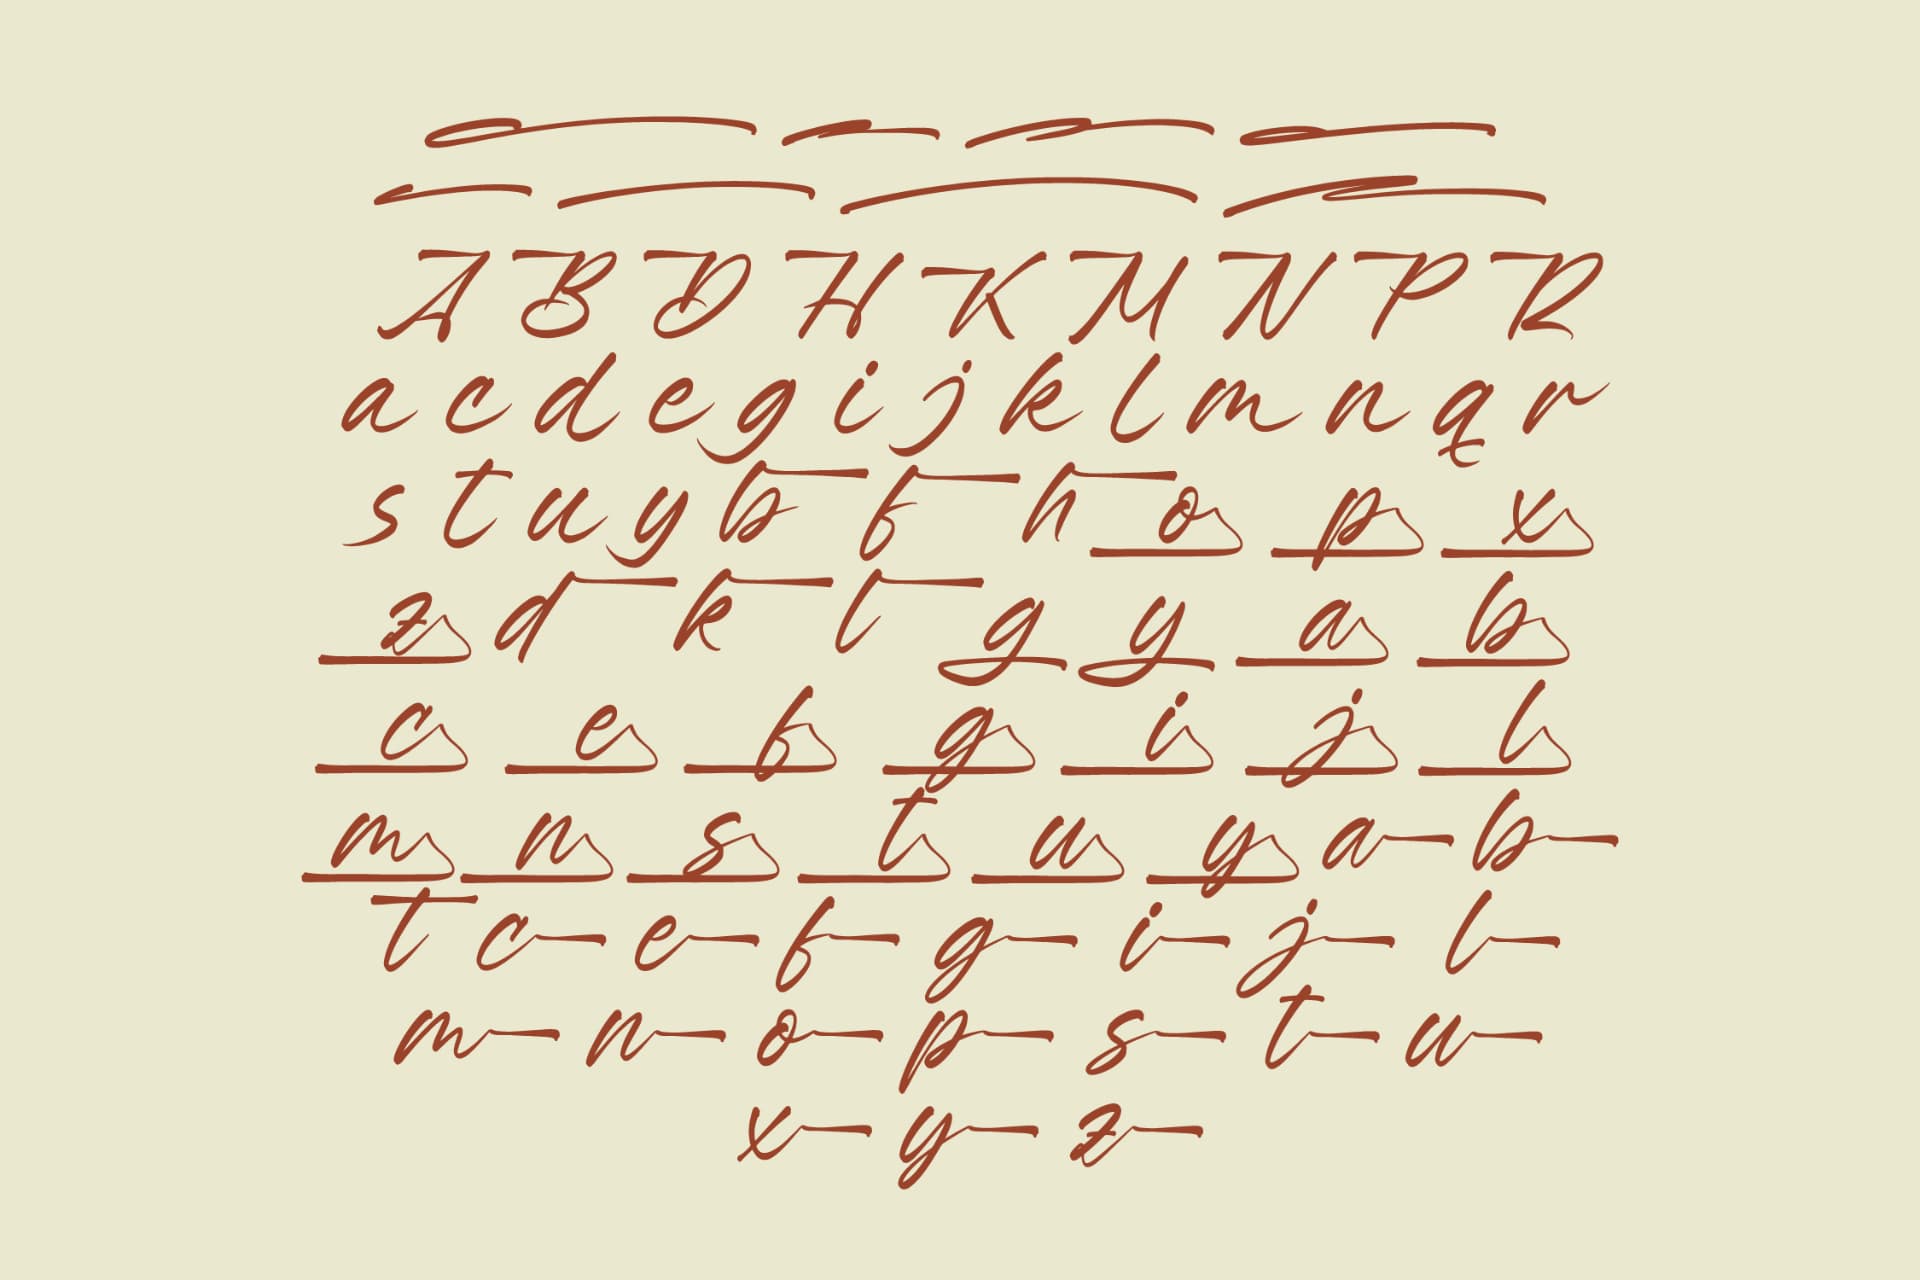 A B D H K M N P R
a c d e g i j k l m n q r
s t u y b f h o p x
z d k t g y a b
c e f g i j l
m n s t u y a b
t c e f g i j l
m n o p s t u
x y z